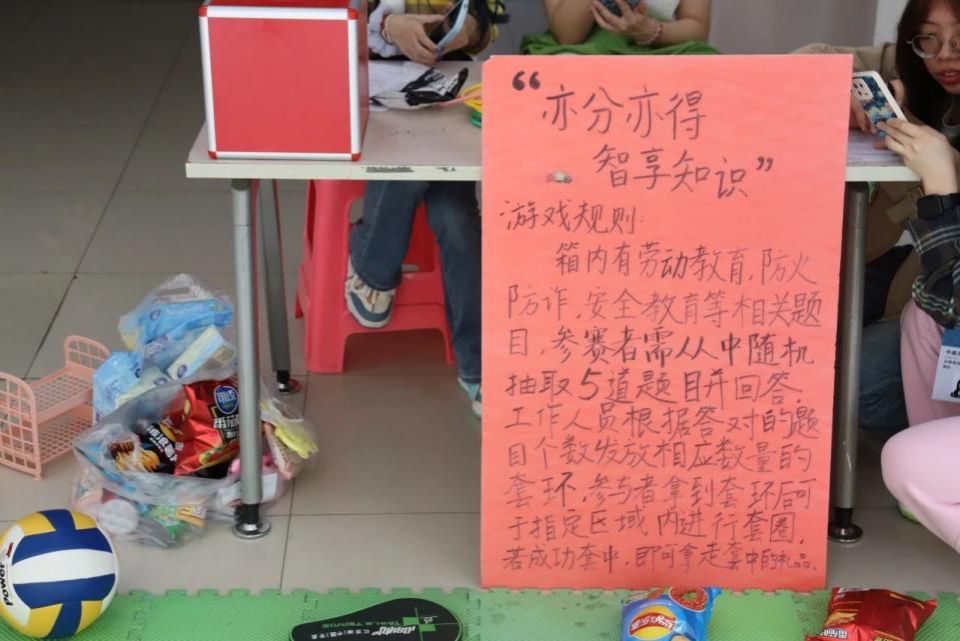 “亦分亦得
智享知识”
游戏规则:
箱内有劳动教育、防火
防诈、安全教育等相关题
目，参赛者需从中随机
抽取5道题目并回答，
工作人员根据答对的题
目个数发放相应数量的
套环，参与者拿到套环后可
于指定区域内进行套圈，
若成功套中，即可拿走套中的礼品。
Power
TABLE TENNIS